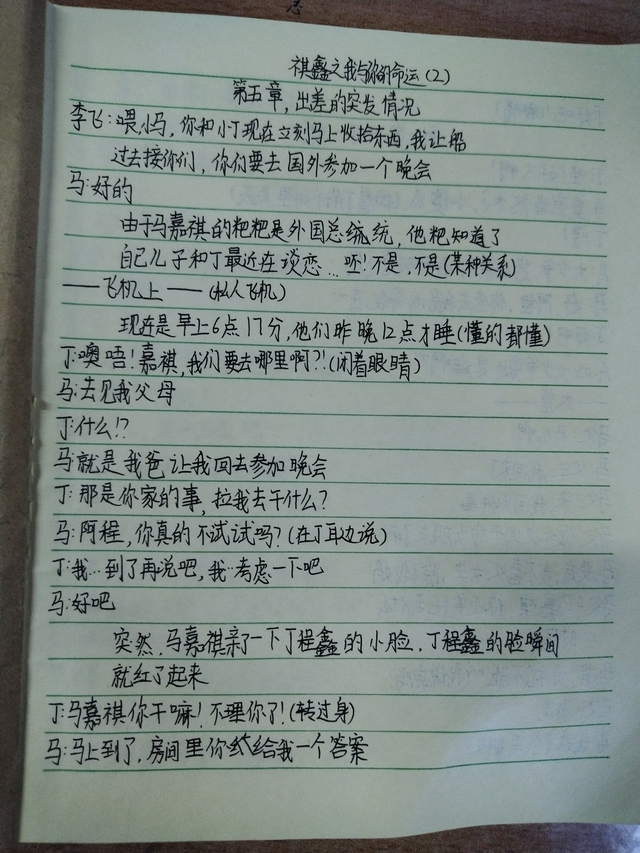 祺鑫之我与你的命运(2)
第五章,出差的突发情况
李飞:喂,小马,你和小丁现在立刻马上收拾东西,我让船
过去接你们,你们要去国外参加一个晚会
马:好的
由于马嘉祺的粑粑是外国总统统,他粑知道了
自己儿子和丁最近在谈恋...呸!不是,不是(某种关系)
——飞机上——(私人飞机)
现在是早上6点17分,他们昨晚12点才睡(懂的都懂)
丁:噢唔!嘉祺,我们要去哪里啊?!(闭着眼睛)
马:去见我父母
丁:什么!?
马:就是我爸让我回去参加晚会
丁:那是你家的事,拉我去干什么?
马:阿程,你真的不试试吗?(在丁耳边说)
丁:我...到了再说吧,我..考虑一下吧
马:好吧
突然,马嘉祺亲了一下丁程鑫的小脸,丁程鑫的脸瞬间
就红了起来
丁:马嘉祺你干嘛!不理你了!(转过身)
马:马上到了,房间里你给我一个答案